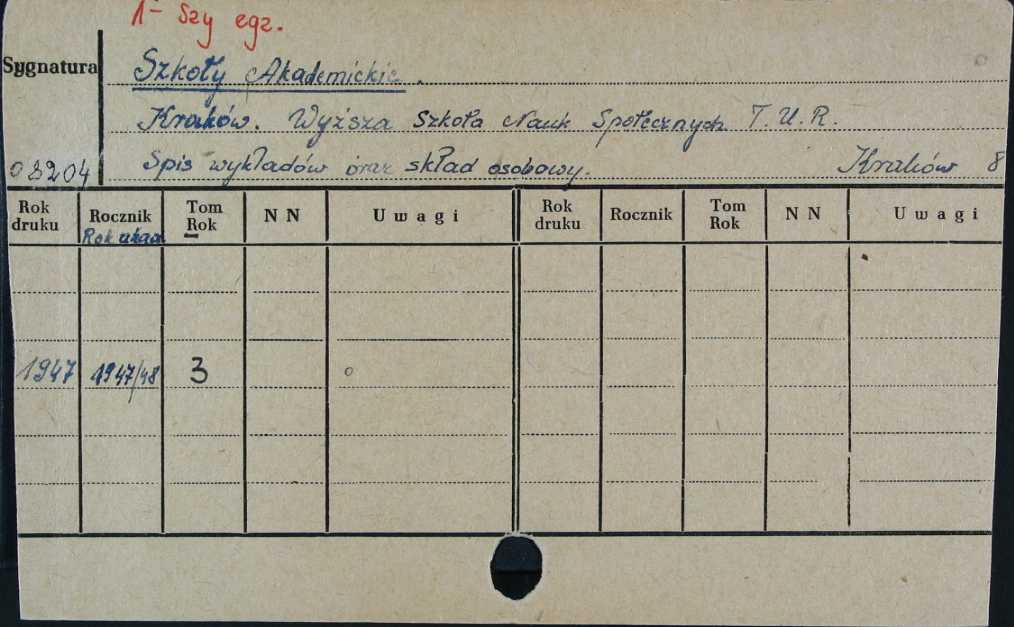 1-szy egz.
Sygnatura
Szkoły Akademickie.
Kraków. Wyższa Szkoła Nauk Społecznych T.U.R.
03204 Spis wykładów oraz skład osobowy. Kraków 8
Rok druku Rocznik Tom Rok NN Uwagi Rok druku Rocznik Tom Rok NN Uwagi
Rok
1947 1947/48 3